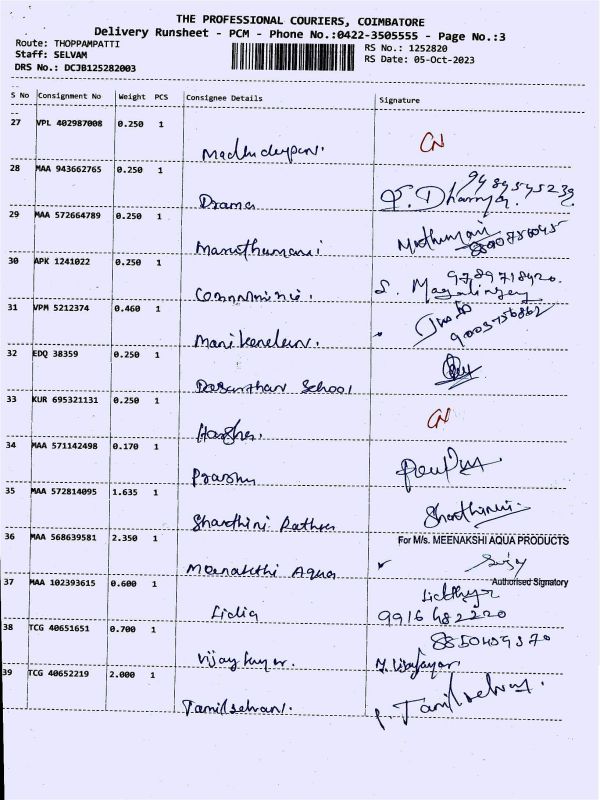 THE PROFESSIONAL COURIERS, COIMBATORE
Delivery Runsheet - PCM - Phone No.:0422-3505555 - Page No.:3
Route: THOPPAMPATTI
RS No.: 1252820
Staff: SELVAM
RS Date: 05-Oct-2023
DRS No.: DCJB125282003
S No Consignment No Weight PCS Consignee Details Signature
27 VPL 402987008 0.250 1
CN
28 MAA 943662765 0.250 1
Drama
29 MAA 572664789 0.250 1
Maruthumani
30 APK 1241022 0.250 1
9789718420.
31 VPM 5212374 0.460 1
Manikandan.
9003756862
32 EDQ 38359 0.250 1
School
33 KUR 695321131 0.250 1
CN
Harsha.
34 MAA 571142498 0.170 1
35 MAA 572814095 1.635 1
Sharthini
36 MAA 568639581 2.350 1
For M/s. MEENAKSHI AQUA PRODUCTS
Meenakshi Aqua
Authorised Signatory
37 MAA 102393615 0.600 1
Lidia
9916482220
38 TCG 40651651 0.700 1
8850459370
Vijaykumar.
39 TCG 40652219 2.000 1
Tamilselvan.
Tamilselvan.